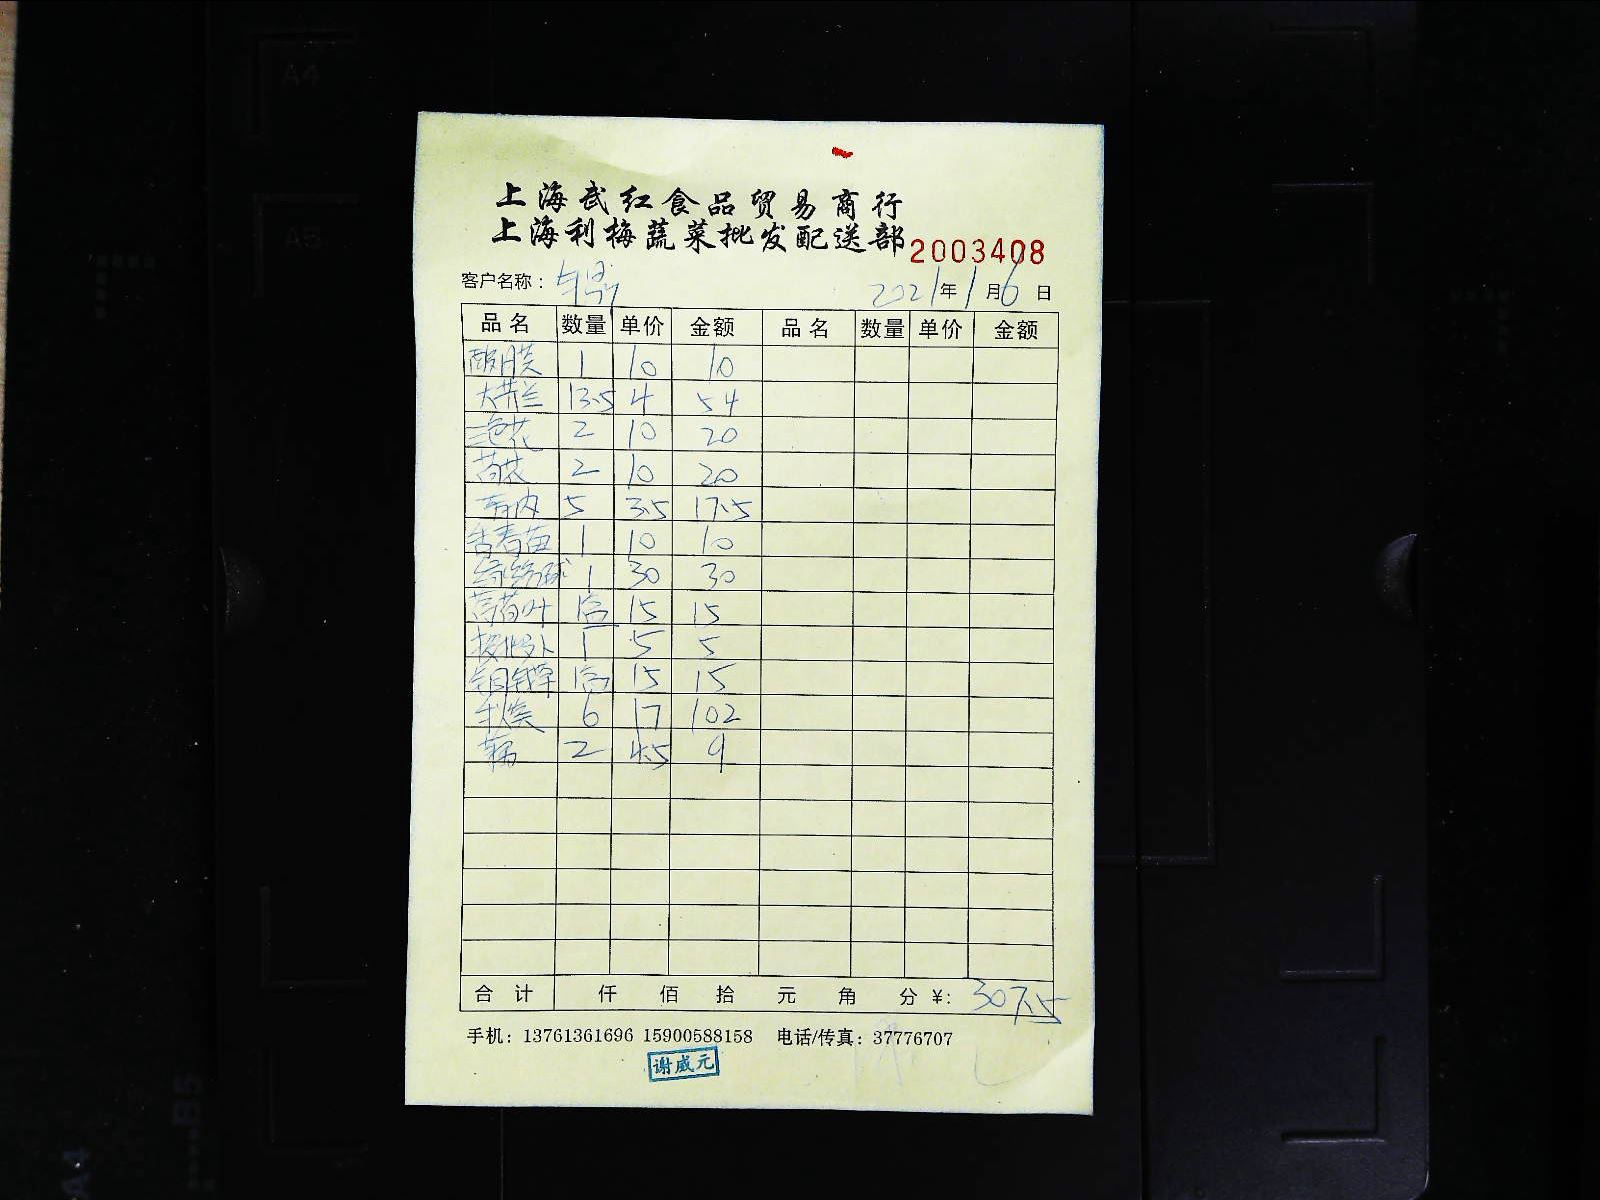 上海武红食品贸易商行
上海利梅蔬菜批发配送部 2003408
客户名称: 2021年1月6日
品名 数量 单价 金额 品名 数量 单价 金额
1 10 10
大芥兰 13.5 4 54
三色花 2 10 20
2 10 20
5 3.5 17.5
香春苗 1 10 10
1 30 30
薄荷叶 1盒 15 15
1 5 5
铜钱草 1盒 15 15
6 17 102
2 4.5 9
合计 仟 佰 拾 元 角 分 ¥: 307.5
手机: 13761361696 15900588158 电话/传真: 37776707
谢威元
A4
A5
B5
A4